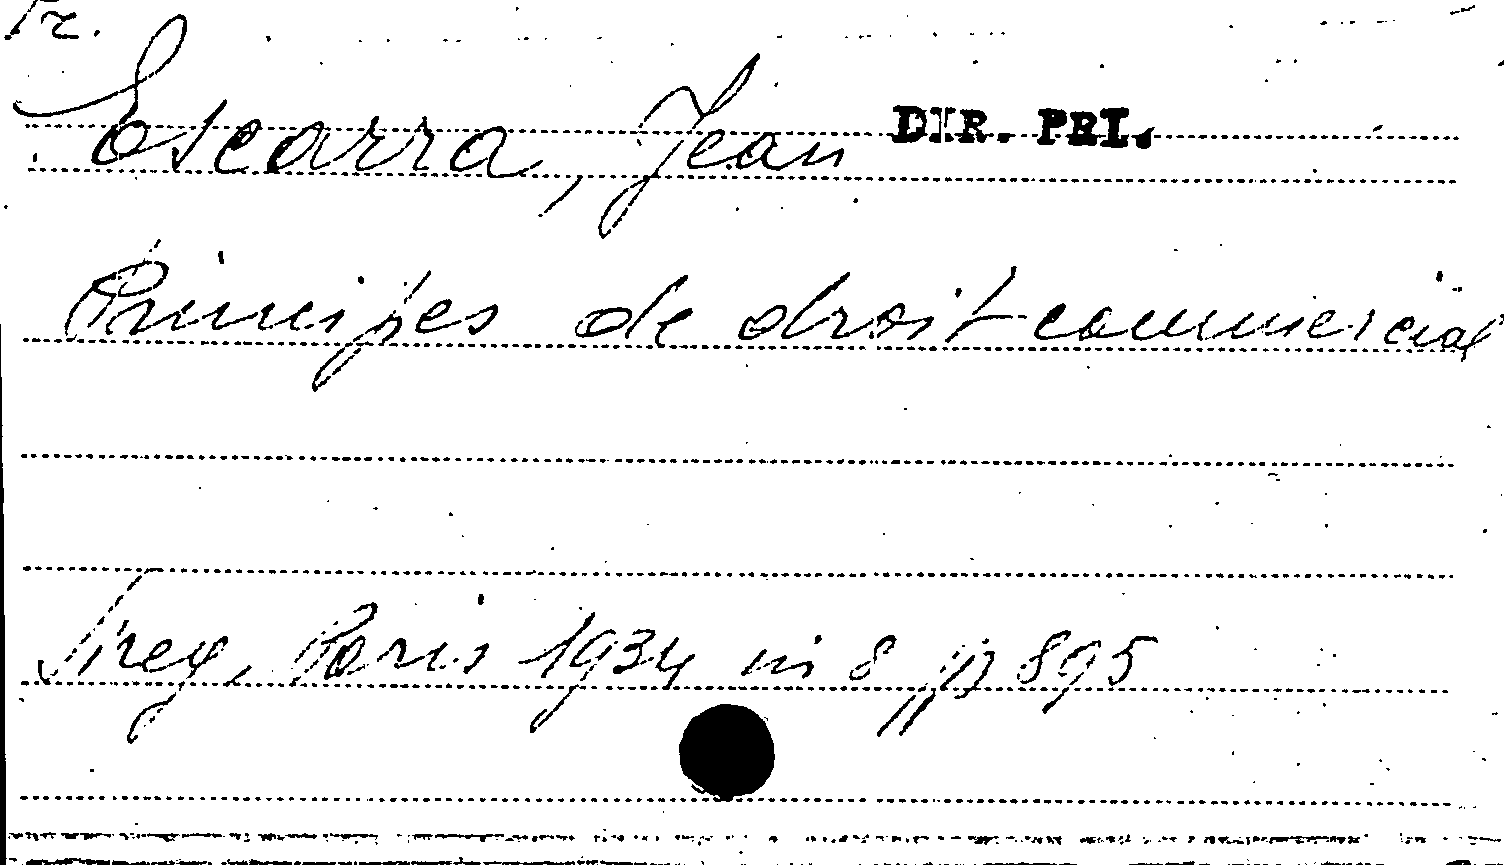 Fr.
Escarra, Jean DIR. PRI.
Principes de droit commercial
Sirey, Paris 1934 in 8 pp 895